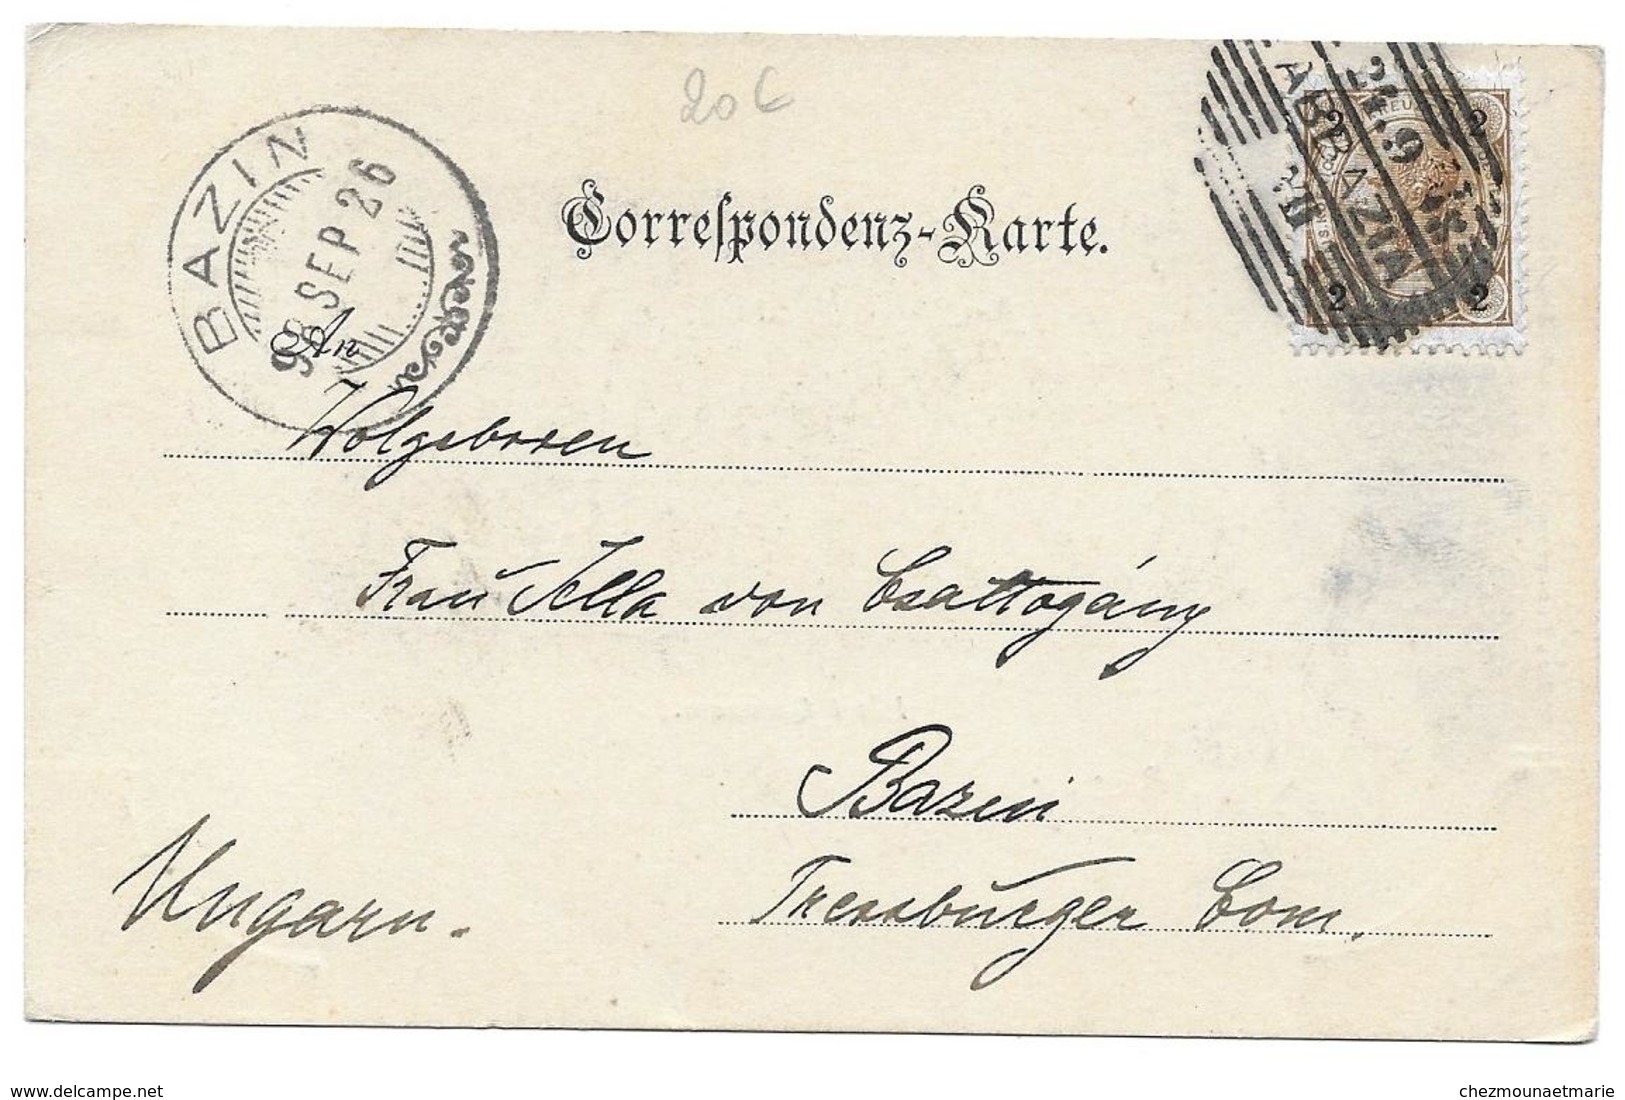 20 €
BAZIN
98 SEP 26
24.9
ABBAZIA
2 2
2 2
Correspondenz-Karte.
An
Wolgeboren
Frau Jella von Csattogány
Bazin
Pressburger Com.
Ungarn.
www.delcampe.net
chezmounaetmarie